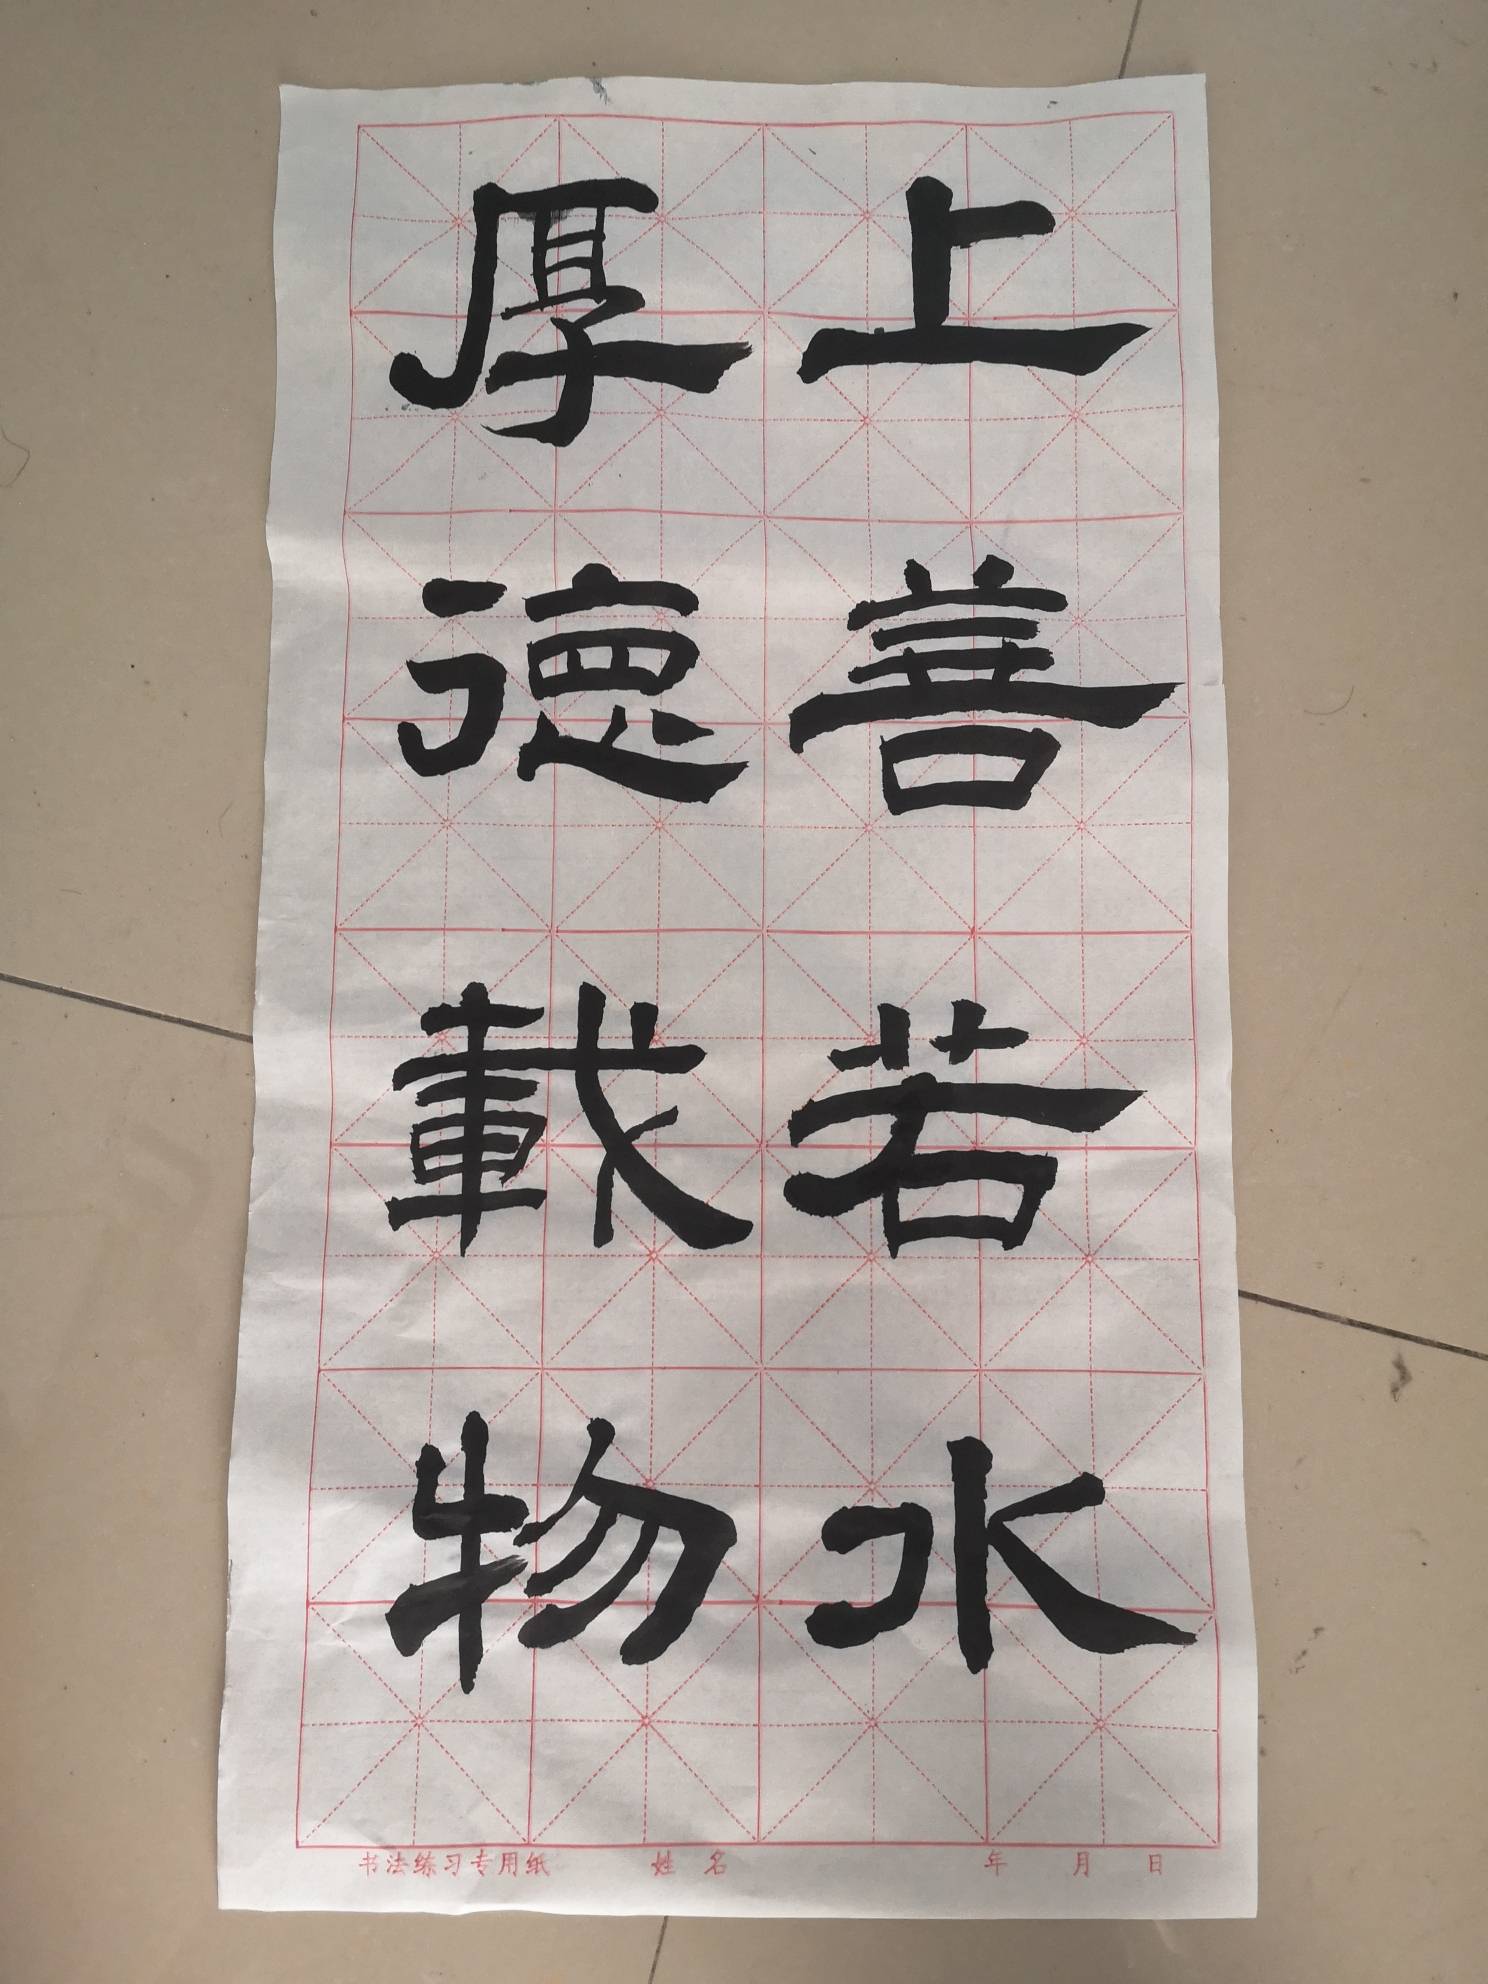 上善若水
厚德載物
书法练习专用纸 姓名 年 月 日